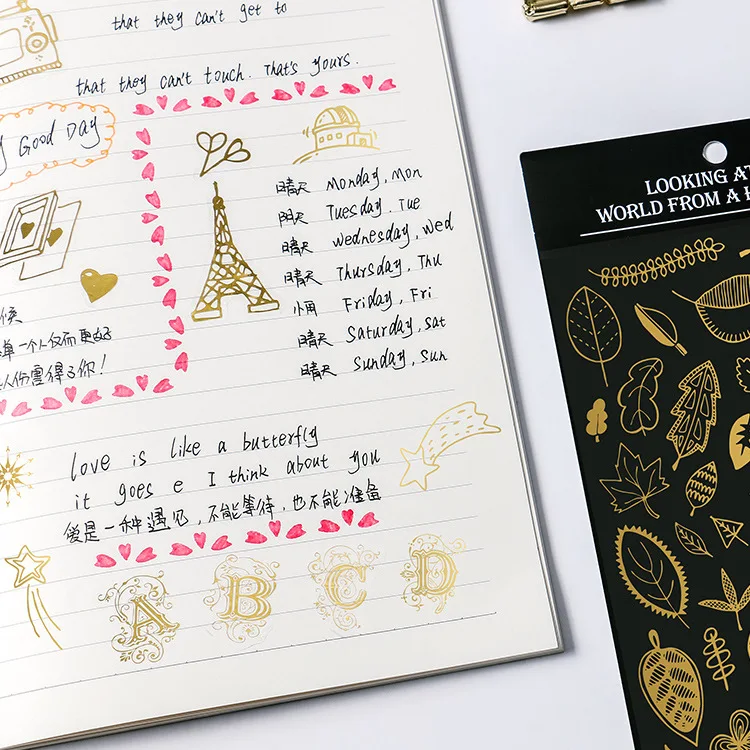 that they can't get to
that they can't touch. That's yours.
Good Day
晴天 Monday, Mon
阳天 Tuesday, Tue
晴天 Wednesday, Wed
晴天 Thursday, Thu
小雨 Friday, Fri
晴天 Saturday, Sat
晴天 Sunday, Sun
候
单一个人仅而更好
人伤害得了你!
love is like a butterfly
it goes e I think about you
爱是一种遇见,不能等待,也不能准备
A B C D
LOOKING AT
WORLD FROM A